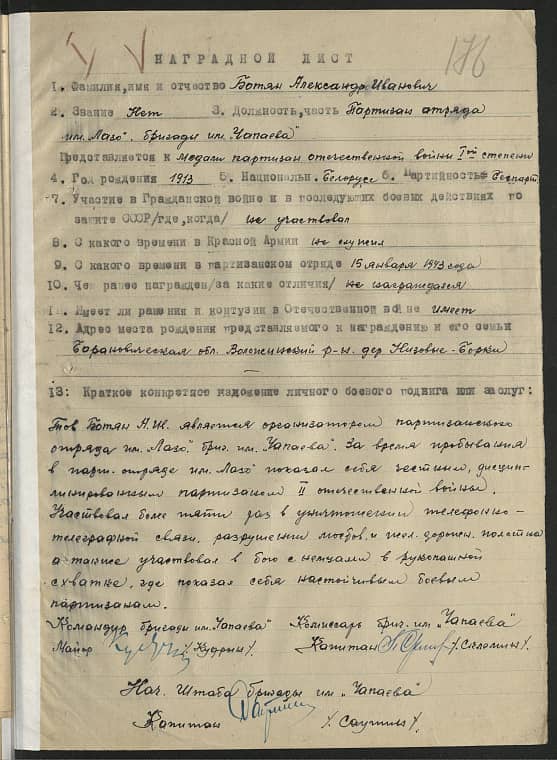 176
НАГРАДНОЙ ЛИСТ
1. Фамилия,имя и отчество Ботян Александр Иванович
2. Звание Нет 3. Должность,часть Партизан отряда
им. Лазо". бригады им. Чапаева"
Представляется к медали партизан отечественной войны Iой степени
4. Год рождения 1913 5. Национальн. Белорусс 6. Партийность Беспарт.
7. Участие в Гражданской войне и в последующих боевых действиях по
защите СССР/где,когда/ не участвовал
8. С какого времени в Красной Армии не служил
9. С какого времени в партизанском отряде 15 января 1943 года
10. Чем ранее награжден/за какие отличия/ не награждался
11. Имеет ли ранения и контузии в Отечественной войне имеет
12. Адрес места рождения представляемого к награждению и его семьи
Барановическая обл. Воложинский р-н. дер Низовые-Борки
13: Краткое конкретное изложение личного боевого подвига или заслуг:
Тов Ботян А.Ив. является организатором партизанского
отряда им. Лазо" бриг. им. Чапаева". За время пребывания
в парт. отряде им. Лазо" показал себя честным, дисцип-
линированным партизаном II отечественной войны.
Участвовал более пяти раз в уничтожении телефонно-
телеграфной связи, разрушении мостов, и жел. дорожн. полотна
а также участвовал в бою с немцами в рукопашной
схватке, где показал себя настойчивым боевым
партизаном.
Командир бригады им. Чапаева" Комиссарь бриг. им "Чапаева"
Майор /Кудрин/. Капитан
Нач. Штаба бригады им „Чапаева"
Капитан